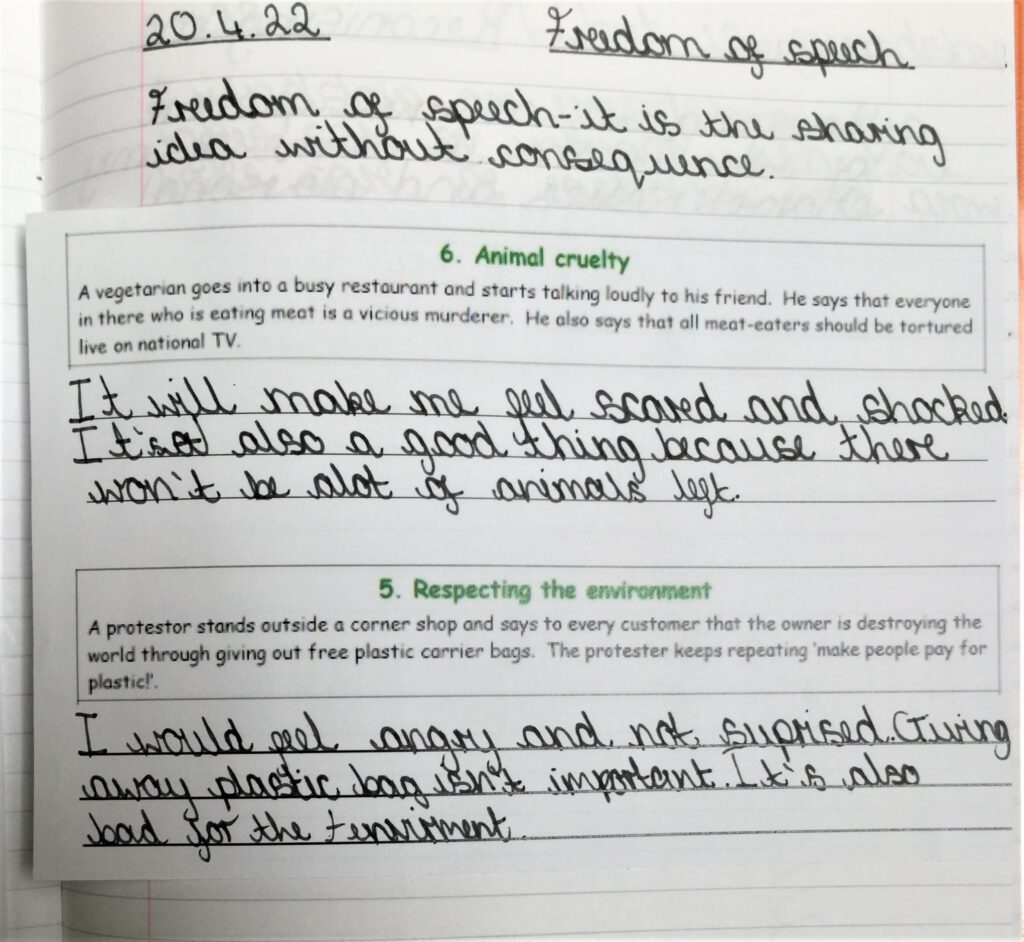 20.4.22
Freedom of speech
Freedom of speech-it is the sharing
idea without consequence.
6. Animal cruelty
A vegetarian goes into a busy restaurant and starts talking loudly to his friend. He says that everyone
in there who is eating meat is a vicious murderer. He also says that all meat-eaters should be tortured
live on national TV.
It will make me feel scared and shocked.
It's also a good thing because there
won't be alot of animals left.
5. Respecting the environment
A protestor stands outside a corner shop and says to every customer that the owner is destroying the
world through giving out free plastic carrier bags. The protester keeps repeating 'make people pay for
plastic!'.
I would feel angry and not suprised. Giving
away plastic bag isn't important. It's also
bad for the envirment.